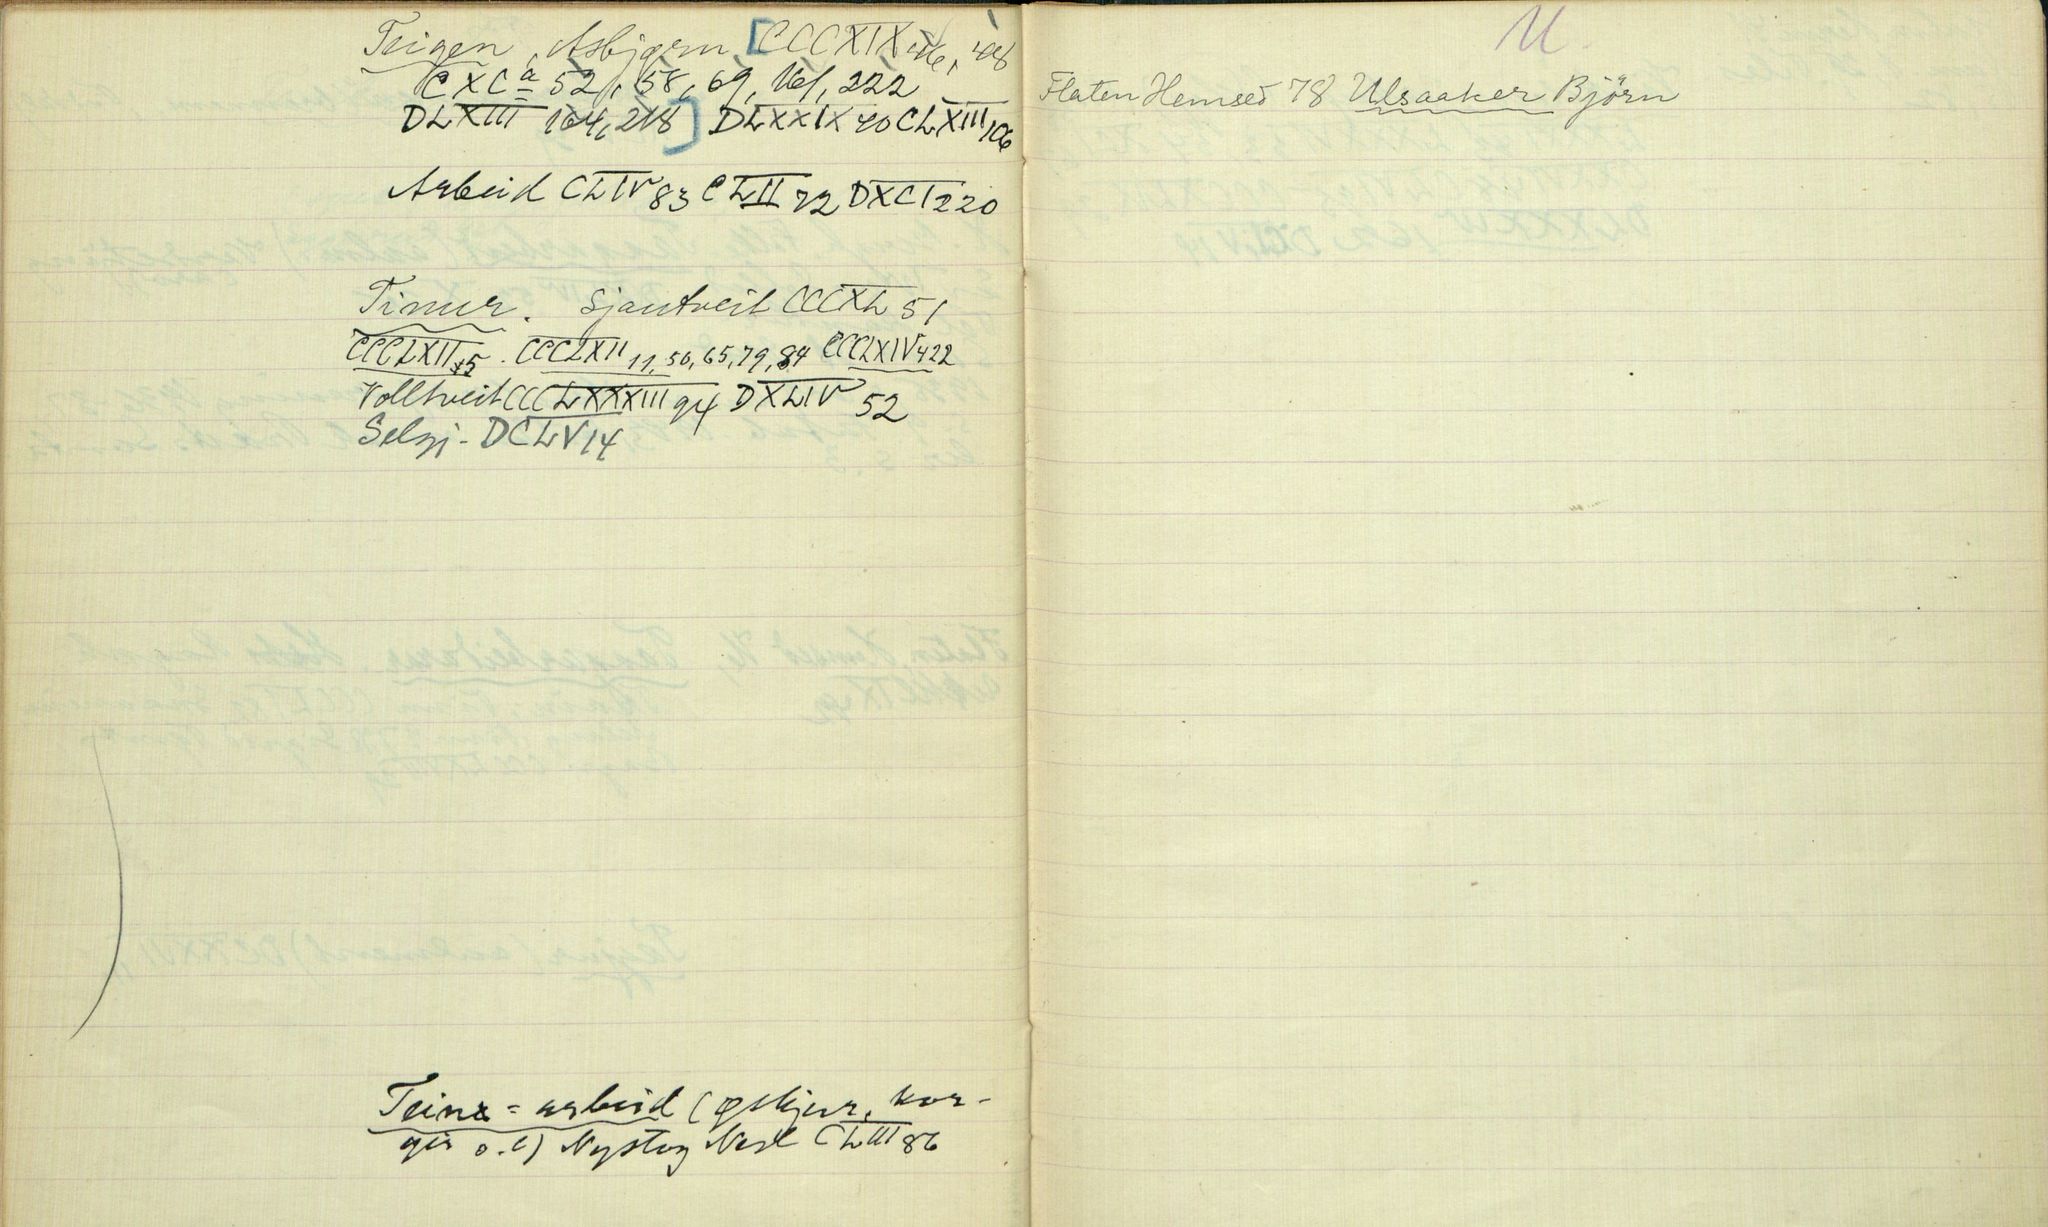 Teigen, Asbjørn, [CCCXIX 46, 48
CXC a 52, 58, 69, 222
DLXIII 164, 218] DLXXIX 40 CLXIII 106
Arbeid CLIV 83 CLII 72 DXCI 220
Timur. Sjautveit CCCXL 51
CCCLXII 45. CCCLXII 11, 50, 65, 79, 84 CCCLXIV 422
Volltveit CCCLXXXIII 94 DXLIV 52
Selgj- DCLV 14
Teine = arbeid (øskjur, kor-
gir o.l) Nystog Nesl CLIII 86
U.
Flaten Hemsed 78 Ulsaaker Björn